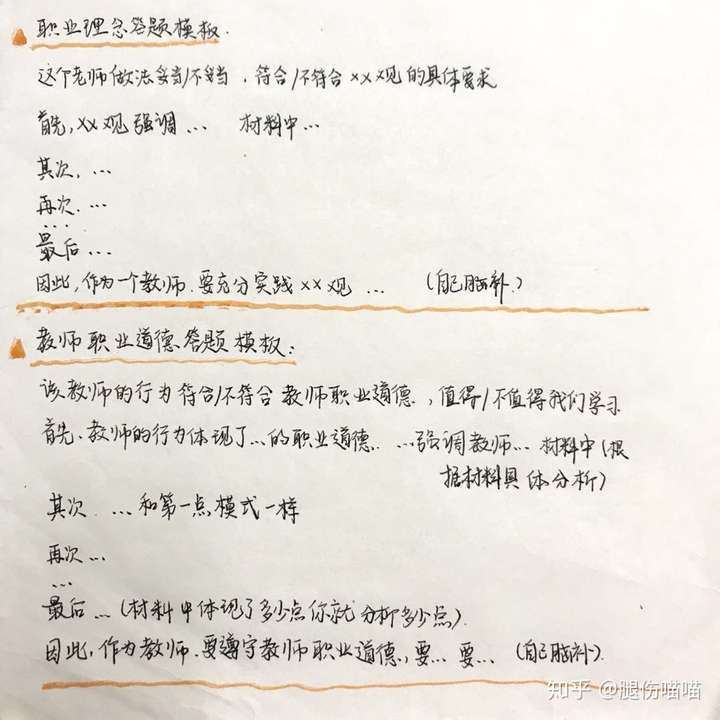 职业理念答题模板.
这个老师做法妥当/不妥当，符合/不符合xxx观的具体要求
首先, xx观强调... 材料中...
其次, ...
再次. ...
...
最后...
因此, 作为一个教师. 要充分实践xx观 ... (自己脑补.)
教师职业道德答题模板:
该教师的行为符合/不符合教师职业道德., 值得/不值得我们学习.
首先、教师的行为体现了...的职业道德. ...强调教师... 材料中(根
据材料具体分析)
其次. ...和第一点模式一样
再次...
...
最后...(材料中体现了多少点你就分析多少点).
因此, 作为教师. 要遵守教师职业道德, 要... 要... (自己脑补).
知乎 @腿伤喵喵